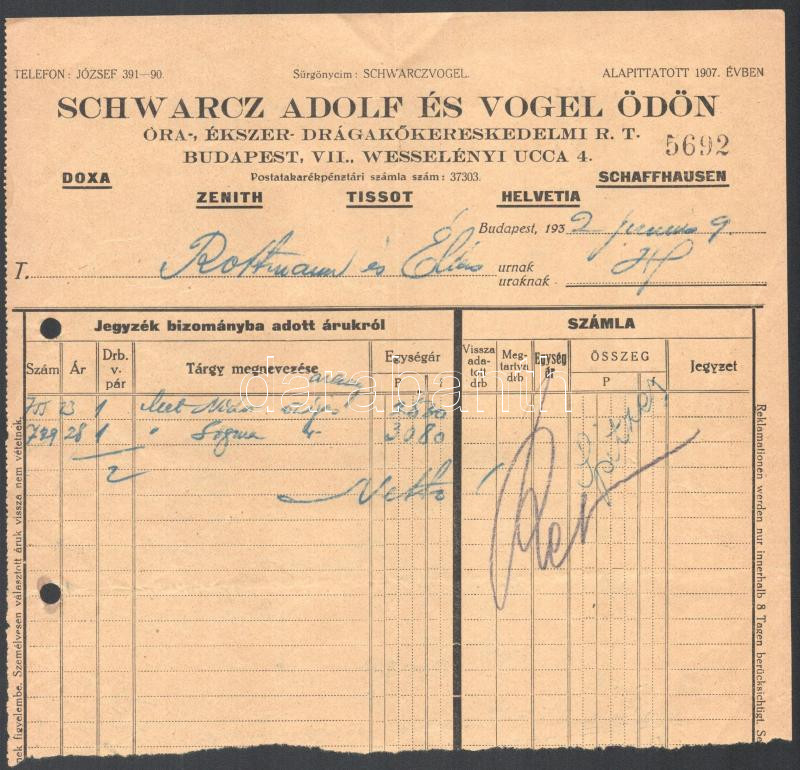 TELEFON: JÓZSEF 391—90. Sürgönycim: SCHWARCZVOGEL. ALAPITTATOTT 1907. ÉVBEN
SCHWARCZ ADOLF ÉS VOGEL ÖDÖN
ÓRA-, ÉKSZER- DRÁGAKŐKERESKEDELMI R. T.
5692
BUDAPEST, VII., WESSELÉNYI UCCA 4.
DOXA Postatakarékpénztári számla szám: 37303. SCHAFFHAUSEN
ZENITH TISSOT HELVETIA
Budapest, 1932 9.
T. Rottmann és Éliás urnak
uraknak
Jegyzék bizományba adott árukról SZÁMLA
Szám Ár Drb. v. pár Tárgy megnevezése Egységár P f
Vissza adatott drb Megtartva drb Egység ár ÖSSZEG P Jegyzet
arany
23 1
729 28 1 " 3080
2
Netto
darabanth
nek figyelembe. Személyesen választott áruk vissza nem vétetnek.
Reklamationen werden nur innerhalb 8 Tagen berücksichtigt. Se